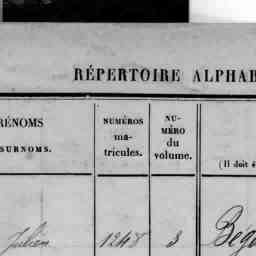 RÉPERTOIRE ALPHAB
RÉNOMS
SURNOMS.
NUMÉROS
ma-
tricules.
NU-
MÉRO
du
volume.
(Il doit é
Julien 1248 3 Bégu